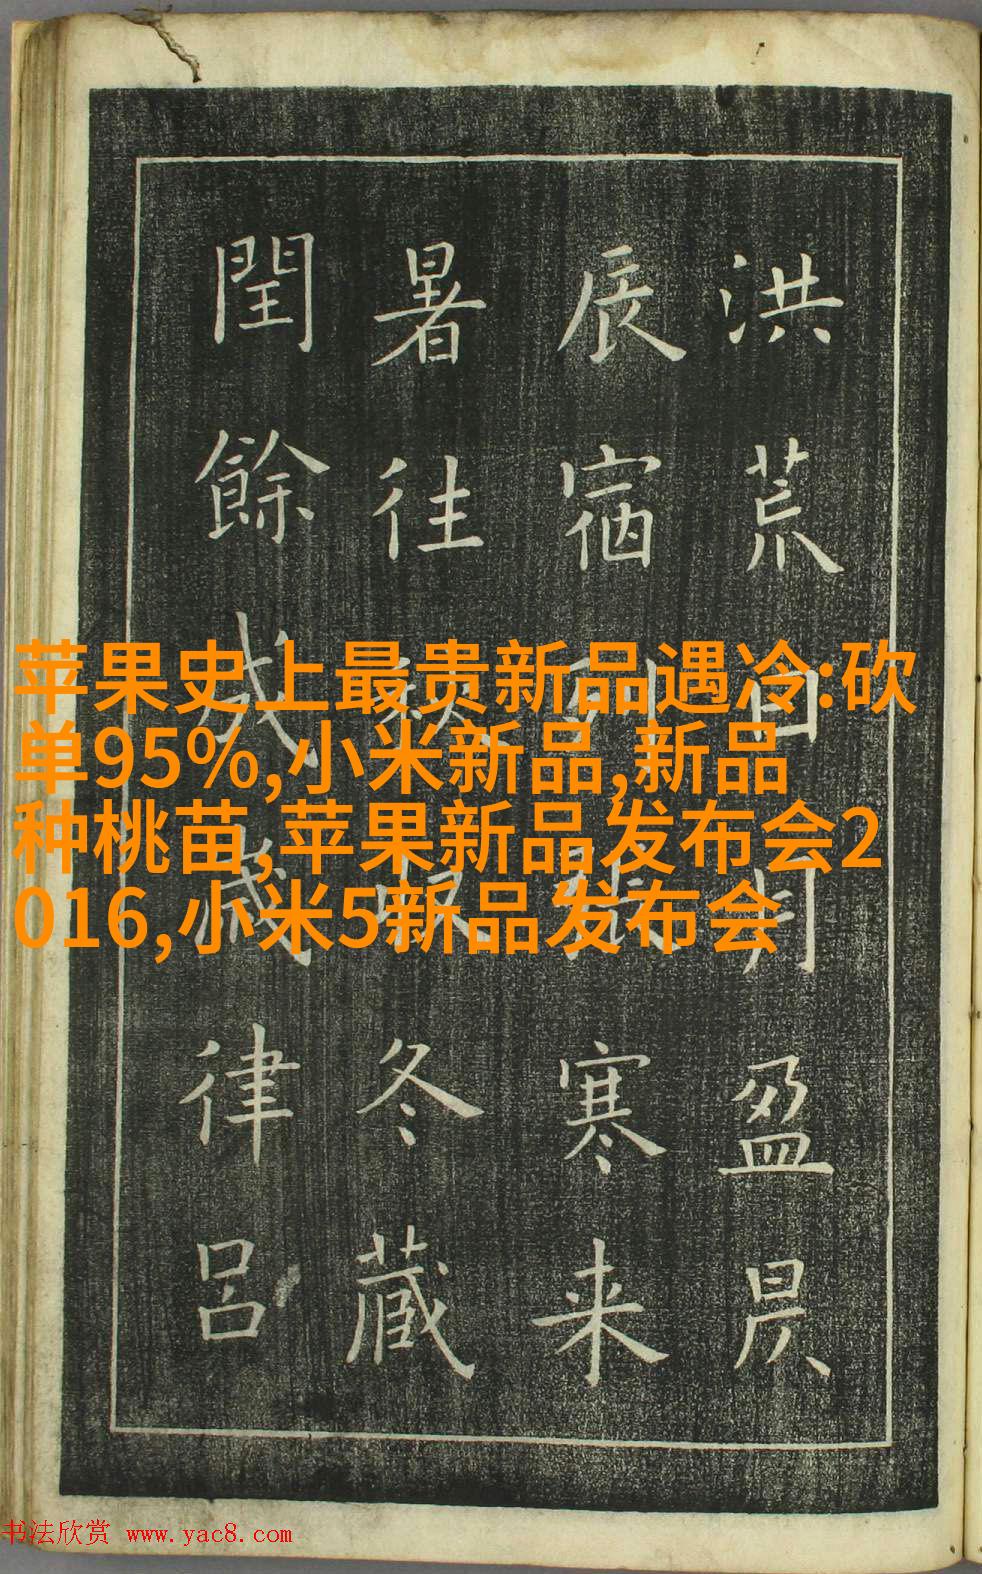 洪荒日月盈昃
辰宿列張寒来
暑往秋收冬藏
閏餘成歲律呂
苹果史上最贵新品遇冷:砍
单95%,小米新品,新品
种桃苗,苹果新品发布会2
016,小米5新品发布会
书法欣赏 www.yac8.com